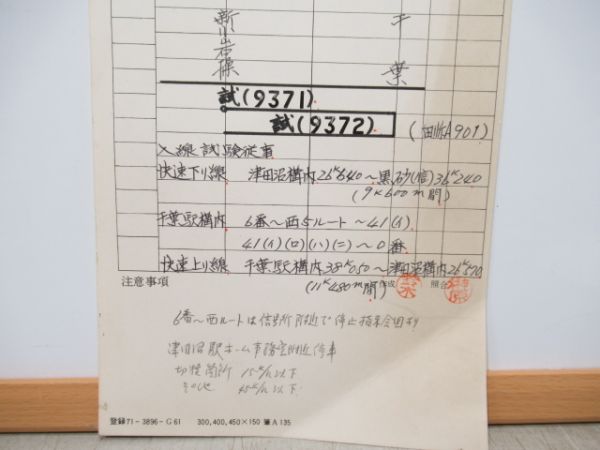 新小岩操
千葉
試(9371)
試(9372)
入線試験従事
快速下り線 津田沼構内26ᴷ640〜黒砂(信)36ᴷ240
(9ᴷ600m間)
千葉駅構内 6番〜西5ルート〜41(イ)
41(イ)(ロ)(ハ)(ニ)〜0番
快速上り線 千葉駅構内38ᴷ050〜津田沼構内26ᴷ570
(11ᴷ480m間)
注意事項
作成
照合
6番〜西ルートは信号所附近で停止
津田沼駅ホーム事務室附近停車
切換箇所 15ᴷ/h以下
その他 45ᴷ/h以下
登録71-3896-G61 300,400,450×150 筆A135